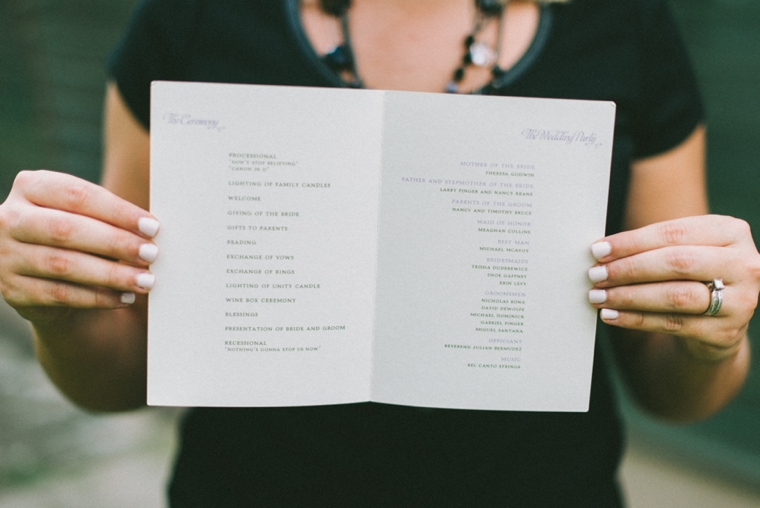 The Ceremony
PROCESSIONAL
"DON'T STOP BELIEVING"
"CANON IN D"
LIGHTING OF FAMILY CANDLES
WELCOME
GIVING OF THE BRIDE
GIFTS TO PARENTS
READING
EXCHANGE OF VOWS
EXCHANGE OF RINGS
LIGHTING OF UNITY CANDLE
WINE BOX CEREMONY
BLESSINGS
PRESENTATION OF BRIDE AND GROOM
RECESSIONAL
"NOTHING'S GONNA STOP US NOW"
The Wedding Party
MOTHER OF THE BRIDE
THERESA GODWIN
FATHER AND STEPMOTHER OF THE BRIDE
LARRY FINGER AND NANCY KEANE
PARENTS OF THE GROOM
NANCY AND TIMOTHY BRUCE
MAID OF HONOR
MEAGHAN COLLINS
BEST MAN
MICHAEL MCAVOY
BRIDESMAIDS
TRISHA
GAFFNEY
ERIN LEVY
GROOMSMEN
NICHOLAS
DAVID
MICHAEL DOMINICK
GABRIEL FINGER
MIGUEL SANTANA
OFFICIANT
REVEREND JULIAN
MUSIC
BEL CANTO STRINGS